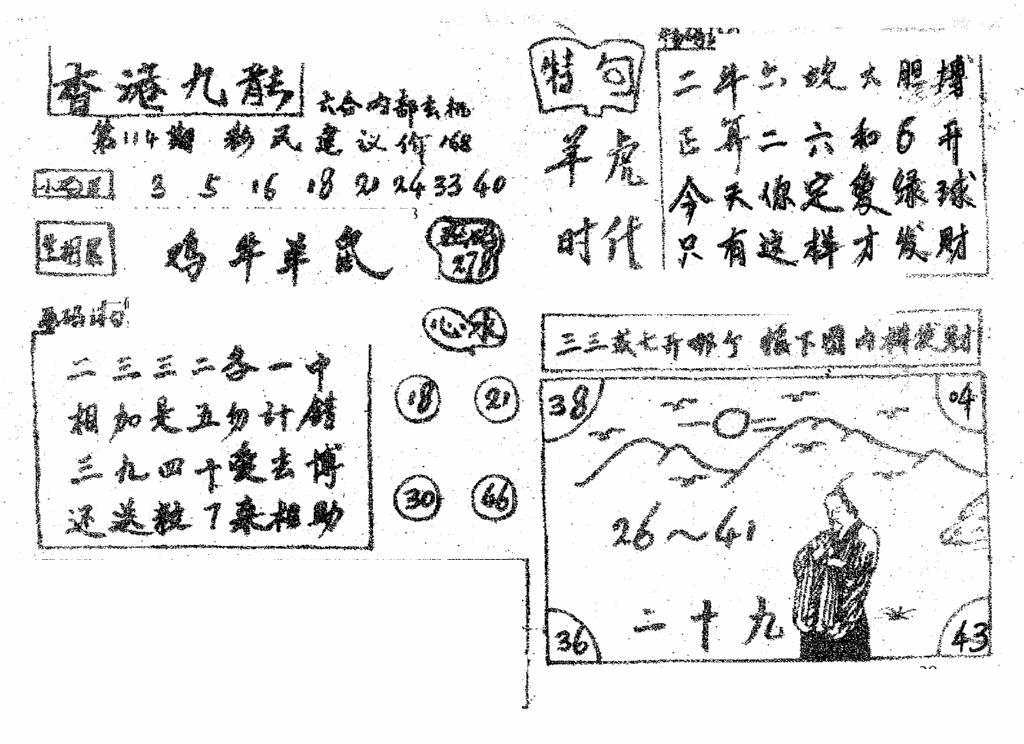 香港九龍
六合内部玄机
第114期 彩民建议价168
3 5 16 18 21 24 33 40
生相
鸡牛羊鼠
278
心水
18 21
30 46
二三三二各一中
相加是五勿计错
三九四十爱去博
还送粒7来相助
特句
羊虎
时代
二斗六 大胆搏
正算二六和6开
今天你定爱绿球
只有这样才发财
三三减七开哪个 下图内 发财
38 04
26～41
二十九
36 43